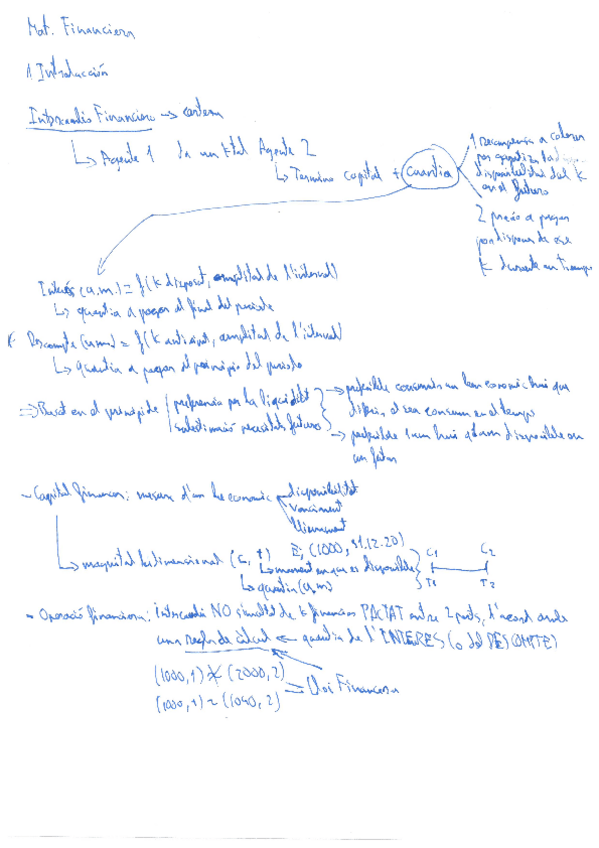 Mat. Financiera
1 Introducción
Intercambio Financiero → certeza
↳ Agente 1 da un k tal Agente 2
↳ Termino capital + cuantia
1 recompensa a cobrar
por garantizar
disponibilidad del k
en el futuro
2 precio a pagar
por disponer de ese
k durante un tiempo
Interés (u.m.) = f(k disposat, amplitud de l'interval)
↳ quantia a pagar al final del periode
Descompte (u.m.) = f(k anticipat, amplitud de l'interval)
↳ quantia a pagar al principio del periodo
⇒ Basat en el principi de
preferencia por la liquiditat
subestimació necesitats futures
→ preferible consumir un bien economic hui que
diferir el seu consum en el temps
→ preferible 1 um hui q 1 um disponible en
un futuro
- Capital financer: mesura d'un be economic
disponibilitat
venciment
lliurament
↳ magnitud bidimensional (C, t) Ej (1000, 31.12.20)
↳ moment en que es disponible
↳ quantia (u.m)
C1 C2
T1 T2
- Operació financiera: Intercambi NO simultat de k financers PACTAT entre 2 parts, d'acord amb
una regla de càlcul ← quantia de l'INTERES (o del DESCOMPTE)
(1000,1) ≁ (2000,2)
(1000,1) ~ (1040,2)
⇒ Llei Financera